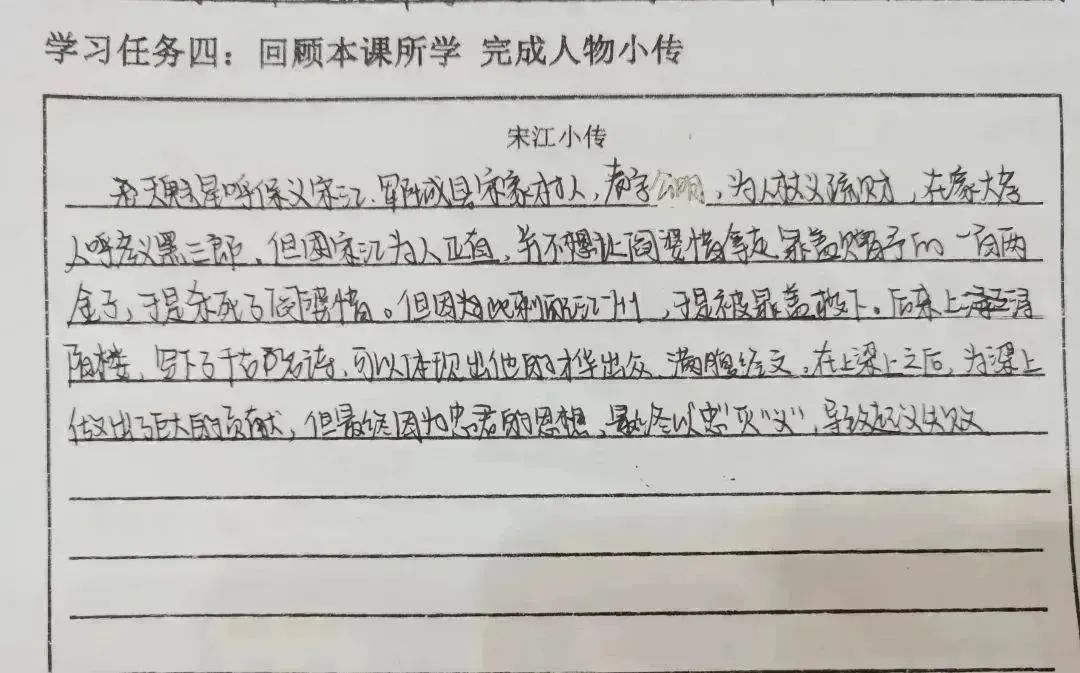 学习任务四：回顾本课所学 完成人物小传
宋江小传
天魁星呼保义宋江，郓城县宋家村人，字公明，为人仗义疏财，在家大孝
人呼孝义黑三郎，但因宋江为人正直，并不想让阎婆惜拿走晁盖赠予的一百两
金子，于是杀死了阎婆惜。但因为此刺配江州，于是被晁盖救下。后来上浔
阳楼，写下了千古名诗，可以体现出他的才华出众，满腹经文。在上梁山之后，为梁山
做出了巨大的贡献，但最终因为忠君的思想，最终以“忠”灭“义”，导致起义失败